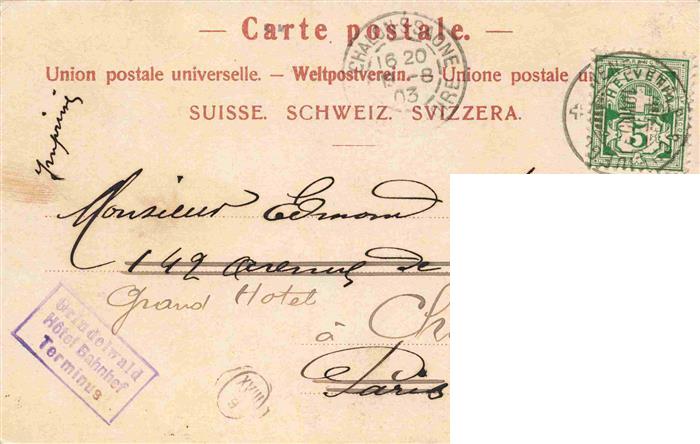 — Carte postale. —
Union postale universelle. — Weltpostverein. — Unione postale
SUISSE. SCHWEIZ. SVIZZERA.
CHALON-S-SAONE
16 20
-8
03
HELVETIA
5
Imprimé
Monsieur Edmond
142 avenue de
Grand Hotel
à
Paris
Grindelwald
Hôtel Bahnhof
Terminus
XVIII
9